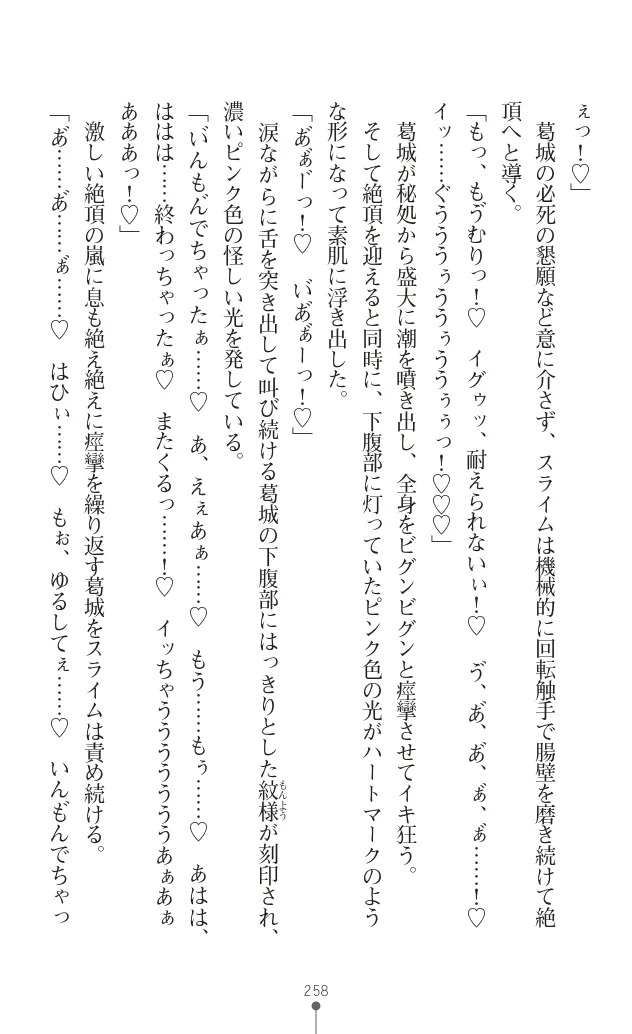 ぇっ！♡」
　葛城の必死の懇願など意に介さず、スライムは機械的に回転触手で腸壁を磨き続けて絶
頂へと導く。
「もっ、もゔむりっ！♡　イグゥッ、耐えられないぃ！♡　ゔ、あ゙、あ゙、ぁ゙、ぁ゙……！♡
イッ……ぐうううぅううぅううぅぅっ！♡♡♡」
　葛城が秘処から盛大に潮を噴き出し、全身をビグンビグンと痙攣させてイキ狂う。
　そして絶頂を迎えると同時に、下腹部に灯っていたピンク色の光がハートマークのよう
な形になって素肌に浮き出した。
「あ゙ぁ゙ーっ！♡　い゙あ゙ぁ゙ーっ！♡」
　涙ながらに舌を突き出して叫び続ける葛城の下腹部にはっきりとした紋様もんようが刻印され、
濃いピンク色の怪しい光を発している。
「い゙んも゙んでちゃったぁ……♡　あ、えぇあぁ……♡　もう……もぅ……♡　あはは、
ははは……終わっちゃったぁ♡　またくるっ……！♡　イッちゃうううううううあぁあぁ
あああっ！♡」
　激しい絶頂の嵐に息も絶え絶えに痙攣を繰り返す葛城をスライムは責め続ける。
「あ゙……あ゙……ぁ゙……♡　はひぃ……♡　もぉ、ゆるしてぇ……♡　いんも゙んでちゃっ
258